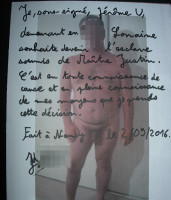 Je, sous signé, Jérôme V,
demeurant en Lorraine
souhaite devenir l'esclave
soumis de Maître Justin.
C'est en toute connaissance de
cause et en pleine connaissance
de mes moyens que je prends
cette décision.
Fait à le 2/09/2016.